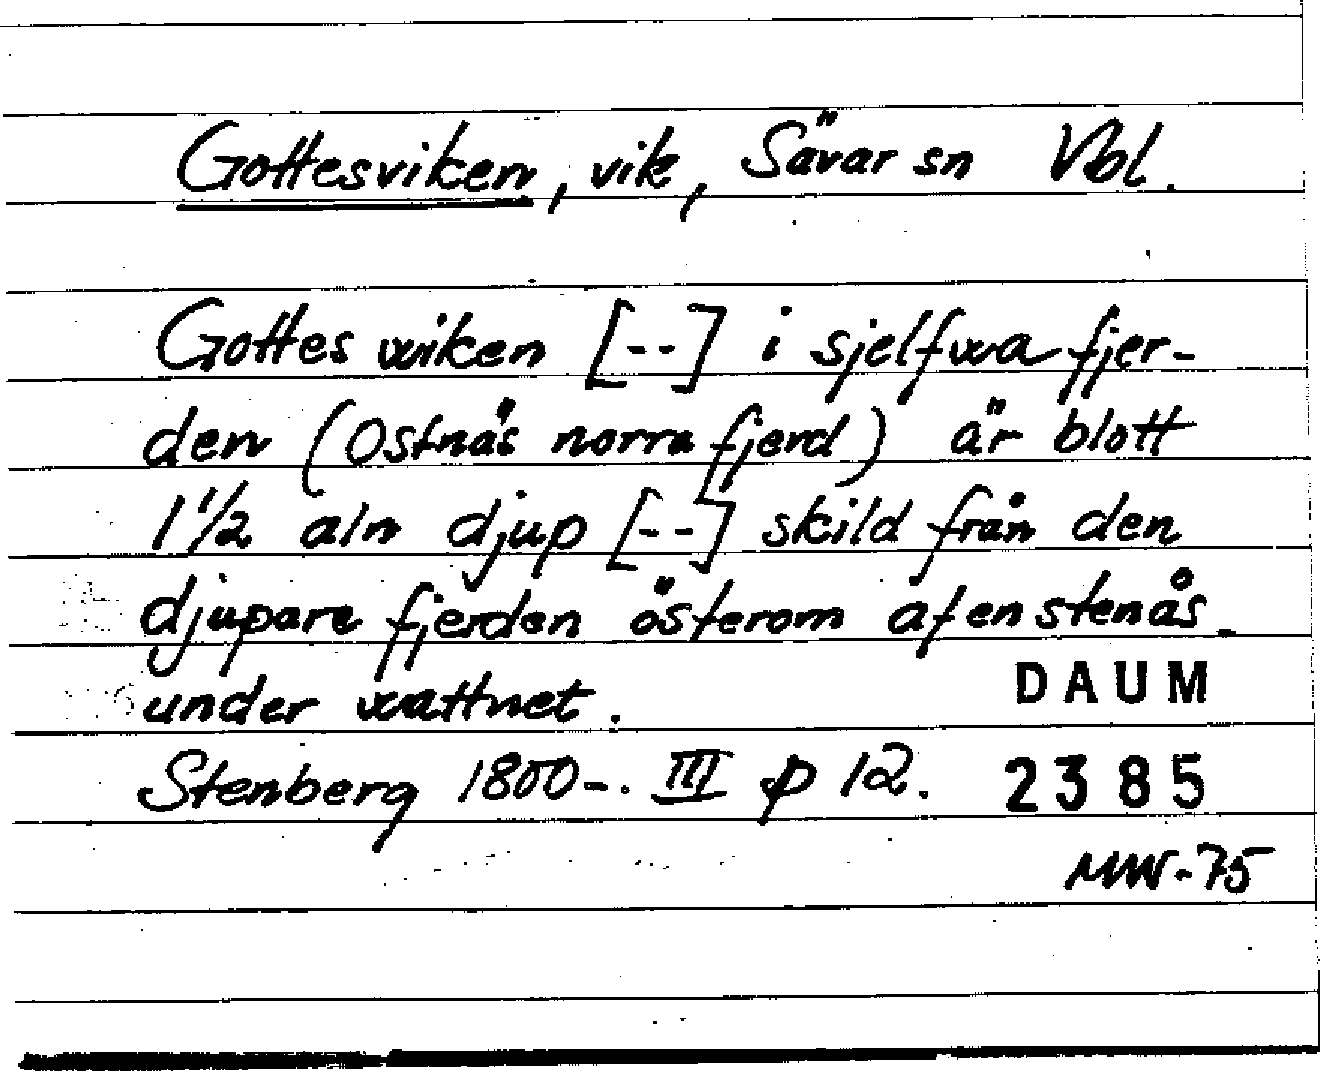 Gottesviken, vik, Sävar sn Vbl.
Gottes wiken [--] i sjelfwa fjer-
den (Ostnäs norra fjerd) är blott
1 1/2 aln djup [--] skild från den
djupare fjerden österom af en stenås
under wattnet.
DAUM
Stenberg 1800-. III p 12.
2385
MW-75